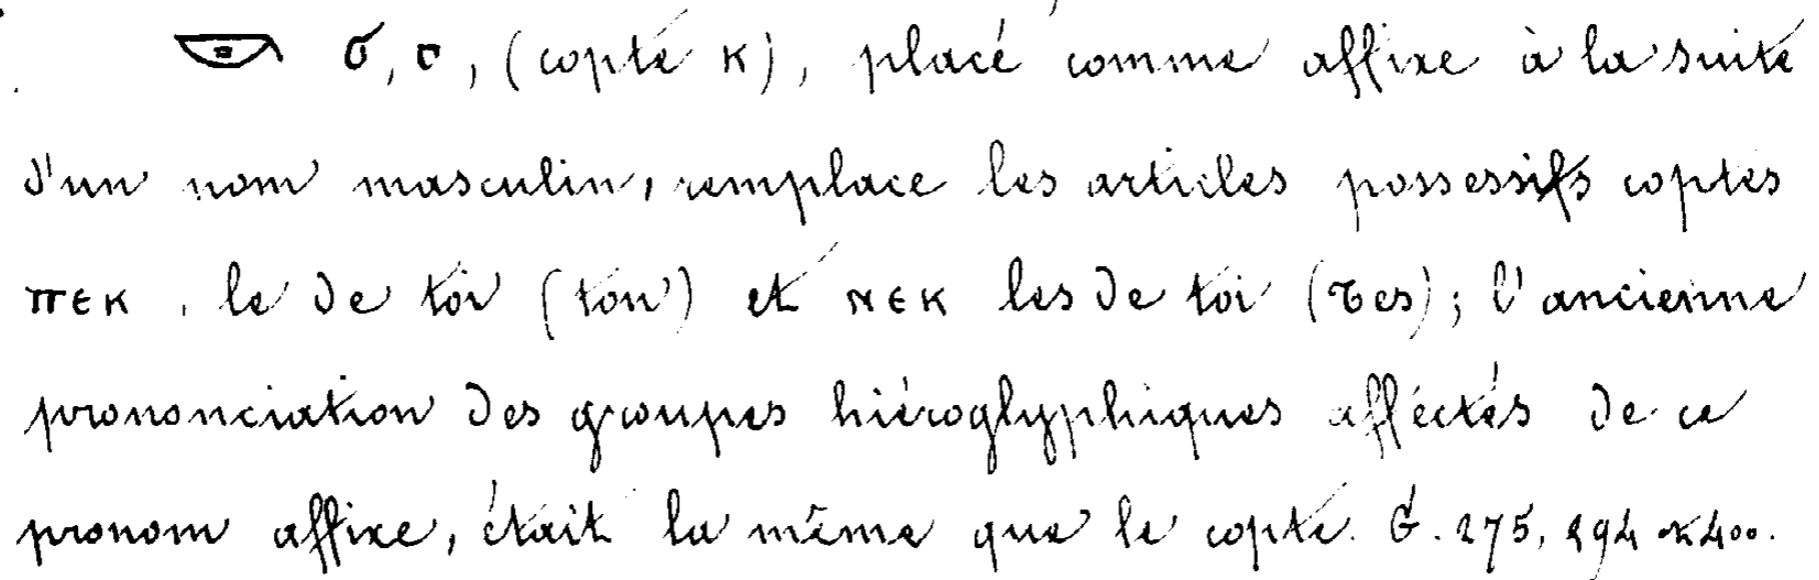 𓎡 σ, ס, (copte ⲕ), placé comme affixe à la suite
d'un nom masculin, remplace les articles possessifs coptes
ⲡⲉⲕ, le de toi (ton) et ⲛⲉⲕ les de toi (tes); l'ancienne
prononciation des groupes hiéroglyphiques affectés de ce
pronom affixe, était la même que le copte. G. 275, 294 et 400.